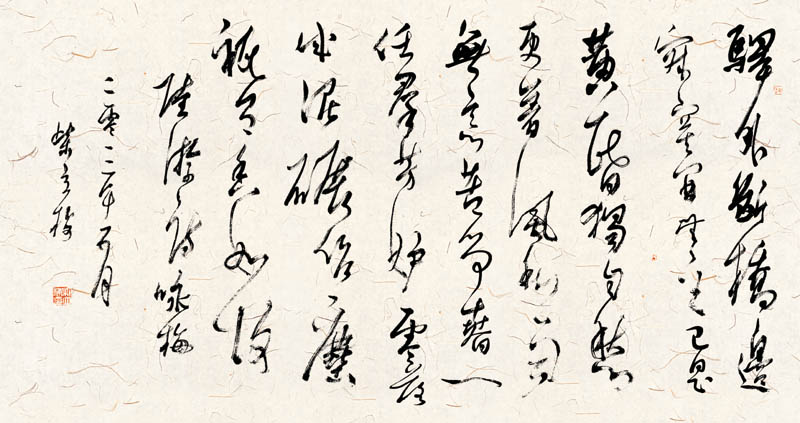 驛外斷橋邊
寂寞開無主已是
黃昏獨自愁
更著風和雨
無意苦爭春一
任群芳妒零落
成泥碾作塵
祇有香如故
陸游詩咏梅
二零一二年五月